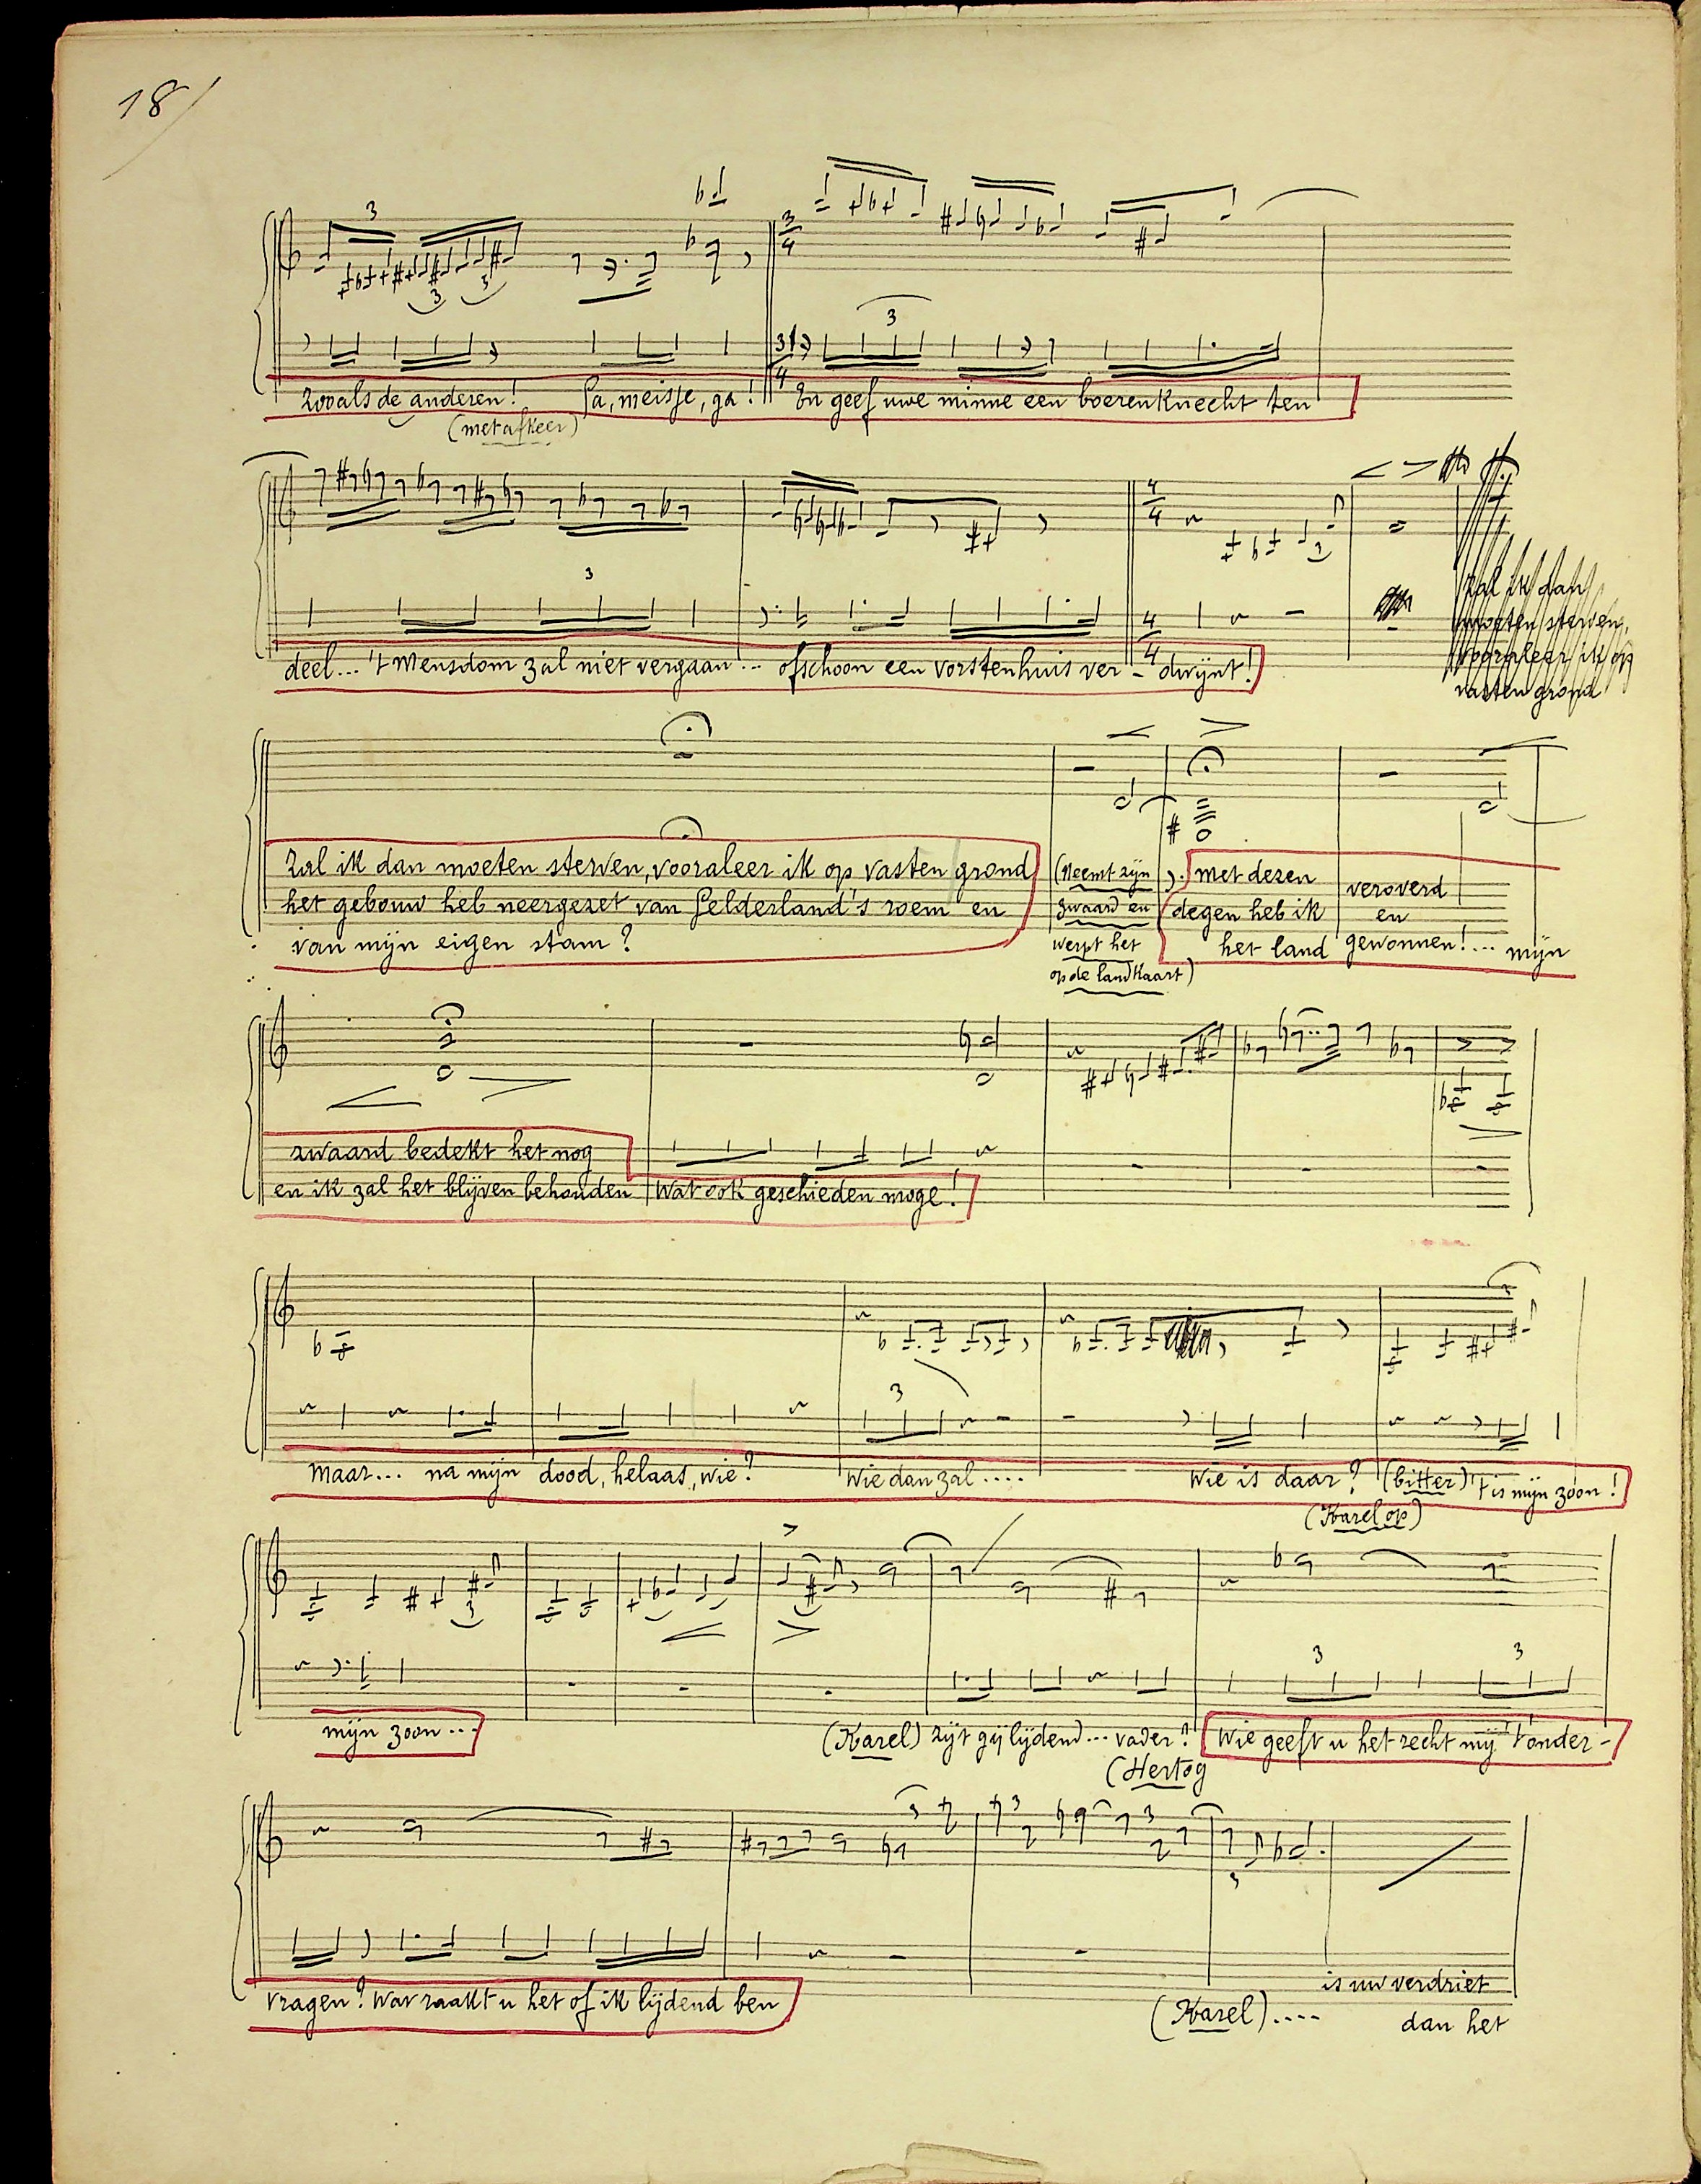 18/
Zooals de anderen! Ga, meisje, ga! En geef uwe minne een boerenknecht ten
(met afkeer)
deel... 't Mensdom zal niet vergaan... ofschoon een vorstenhuis ver - dwijnt!
Zal ik dan
moeten sterven,
vooraleer ik op
vasten grond
Zal ik dan moeten sterven, vooraleer ik op vasten grond
het gebouw heb neergezet van Gelderland's roem en
van mijn eigen stam?
(Neemt zijn
zwaard en
werpt het
op de landkaart)
met dezen
degen heb ik
het land
veroverd
en
gewonnen!... mijn
zwaard bedekt het nog
en ik zal het blijven behouden Wat ook geschieden moge!
Maar... na mijn dood, helaas, wie? Wie dan zal.... Wie is daar? (bitter) 't is mijn zoon!
(Karel op)
mijn zoon... (Karel) zijt gij lijdend... vader? Wie geeft u het recht mij t'onder-
(Hertog
vragen? Wat raakt u het of ik lijdend ben
(Karel).... is uw verdriet
dan het